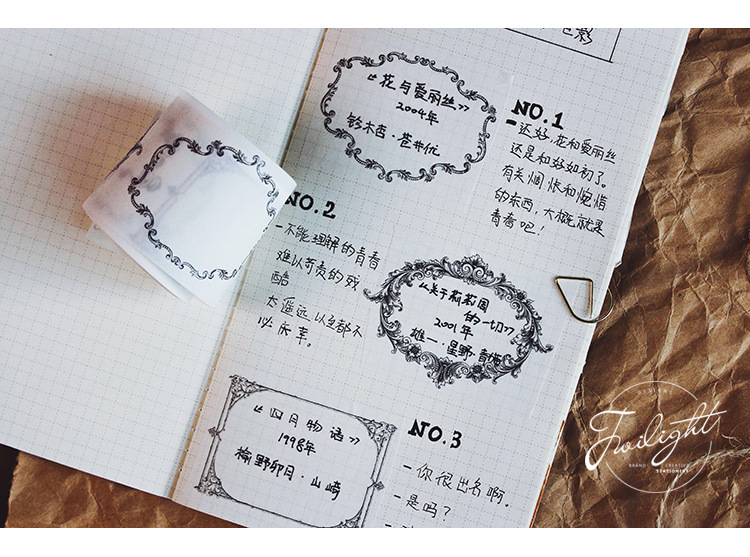 影
《花与爱丽丝》
2004年
铃木杏·苍井优
NO.1
-还好,花和爱丽丝
还是和好如初了。
有关惆怅和惋惜
的东西,大概就是
青春吧!
NO.2
-不能理解的青春
难以苛责的残
酷
太遥远,以至都不
必庆幸。
《关于莉莉周
的一切》
2001年
雄一·星野·青猫
《四月物语》
1998年
榆野卯月·山崎
NO.3
-你很出名啊。
-是吗?
Twilight
BRAND CREATIVE
STATIONERY